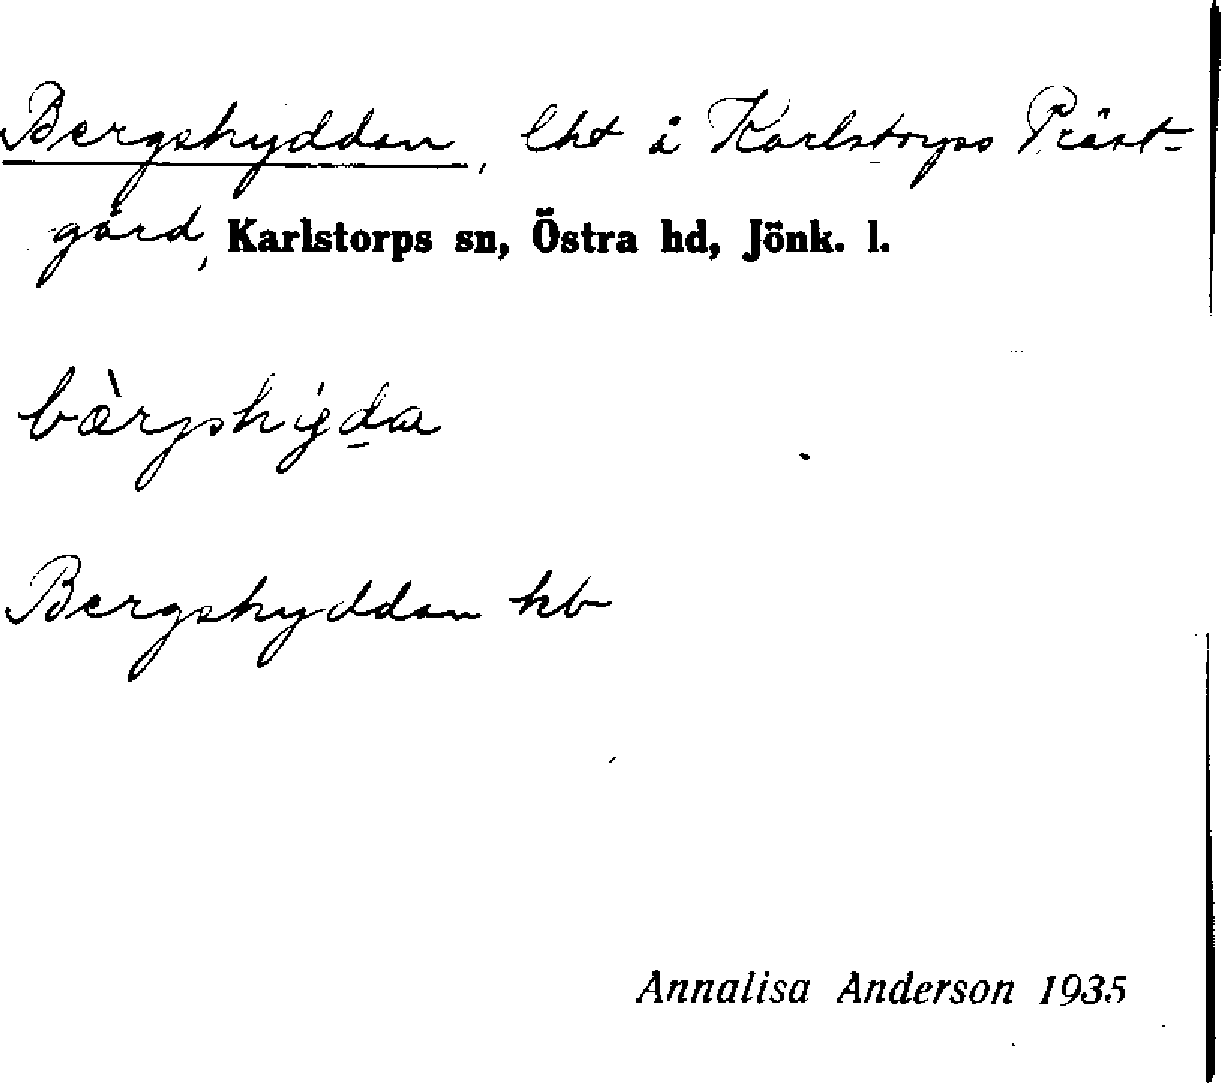 Bergshyddan, lht å Karlstorps Präst-
gård, Karlstorps sn, Östra hd, Jönk. l.
bàrgshyda
Bergshyddan kb
Annalisa Anderson 1935